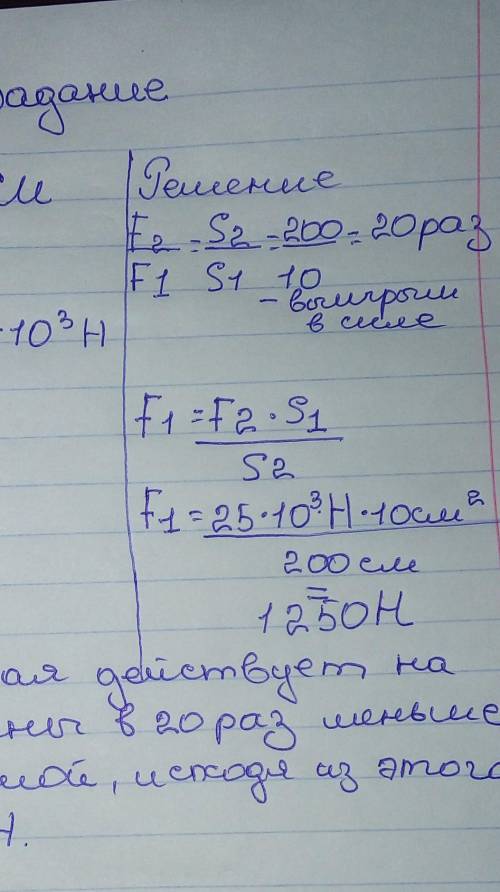 адание
см
Решение
F2 = S2 = 200 = 20 раз
F1 S1 10
- выигрыш
в силе
·10³ Н
F1 = F2 · S1
S2
F1 = 25·10³·Н·10см²
200 см
=
1250Н
ая действует на
ны в 20 раз меньше
мой, исходя из этого
Н.